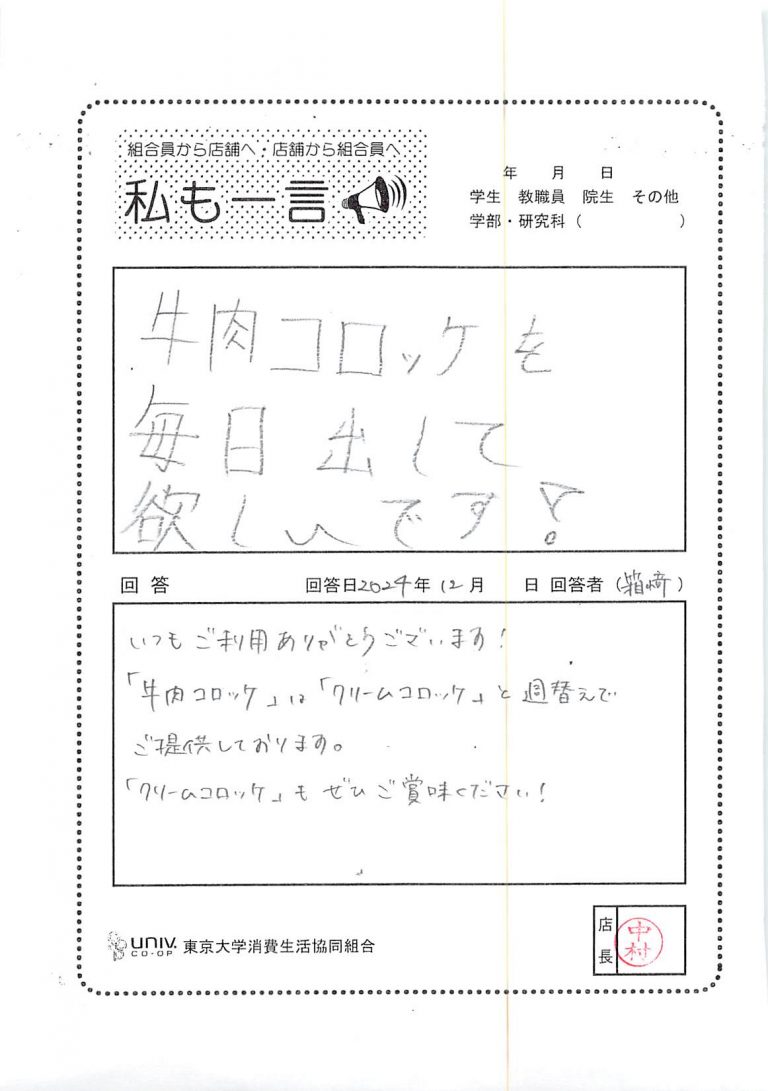 組合員から店舗へ・店舗から組合員へ
私も一言
年 月 日
学生 教職員 院生 その他
学部・研究科( )
牛肉コロッケを
毎日出して
欲しいです!
回答 回答日2024年12月 日 回答者(箱崎)
いつもご利用ありがとうございます!
「牛肉コロッケ」は「クリームコロッケ」と週替えで
ご提供しております。
「クリームコロッケ」もぜひご賞味ください!
UNIV. CO-OP 東京大学消費生活協同組合
店長 中村